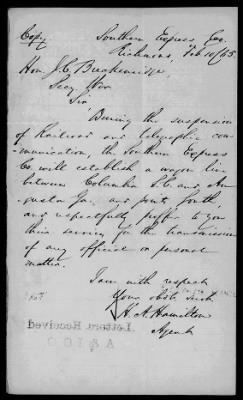 Copy
Southern Express Co.
Richmond, Feb 10/65
Hon. J. C. Breckenridge,
Secy War
Sir,
During the suspension
of Railroad and telegraphic com-
munication, the Southern Express
Co will establish a wagon line
between Columbia S.C. and Au-
gusta Ga. and points South,
and respectfully proffer to you
their service for the transmission
of any official or personal
matter.
I am with respect
Your obdt. Servt.
H. A. Hamilton
Agent
Letters Received
A & I G O